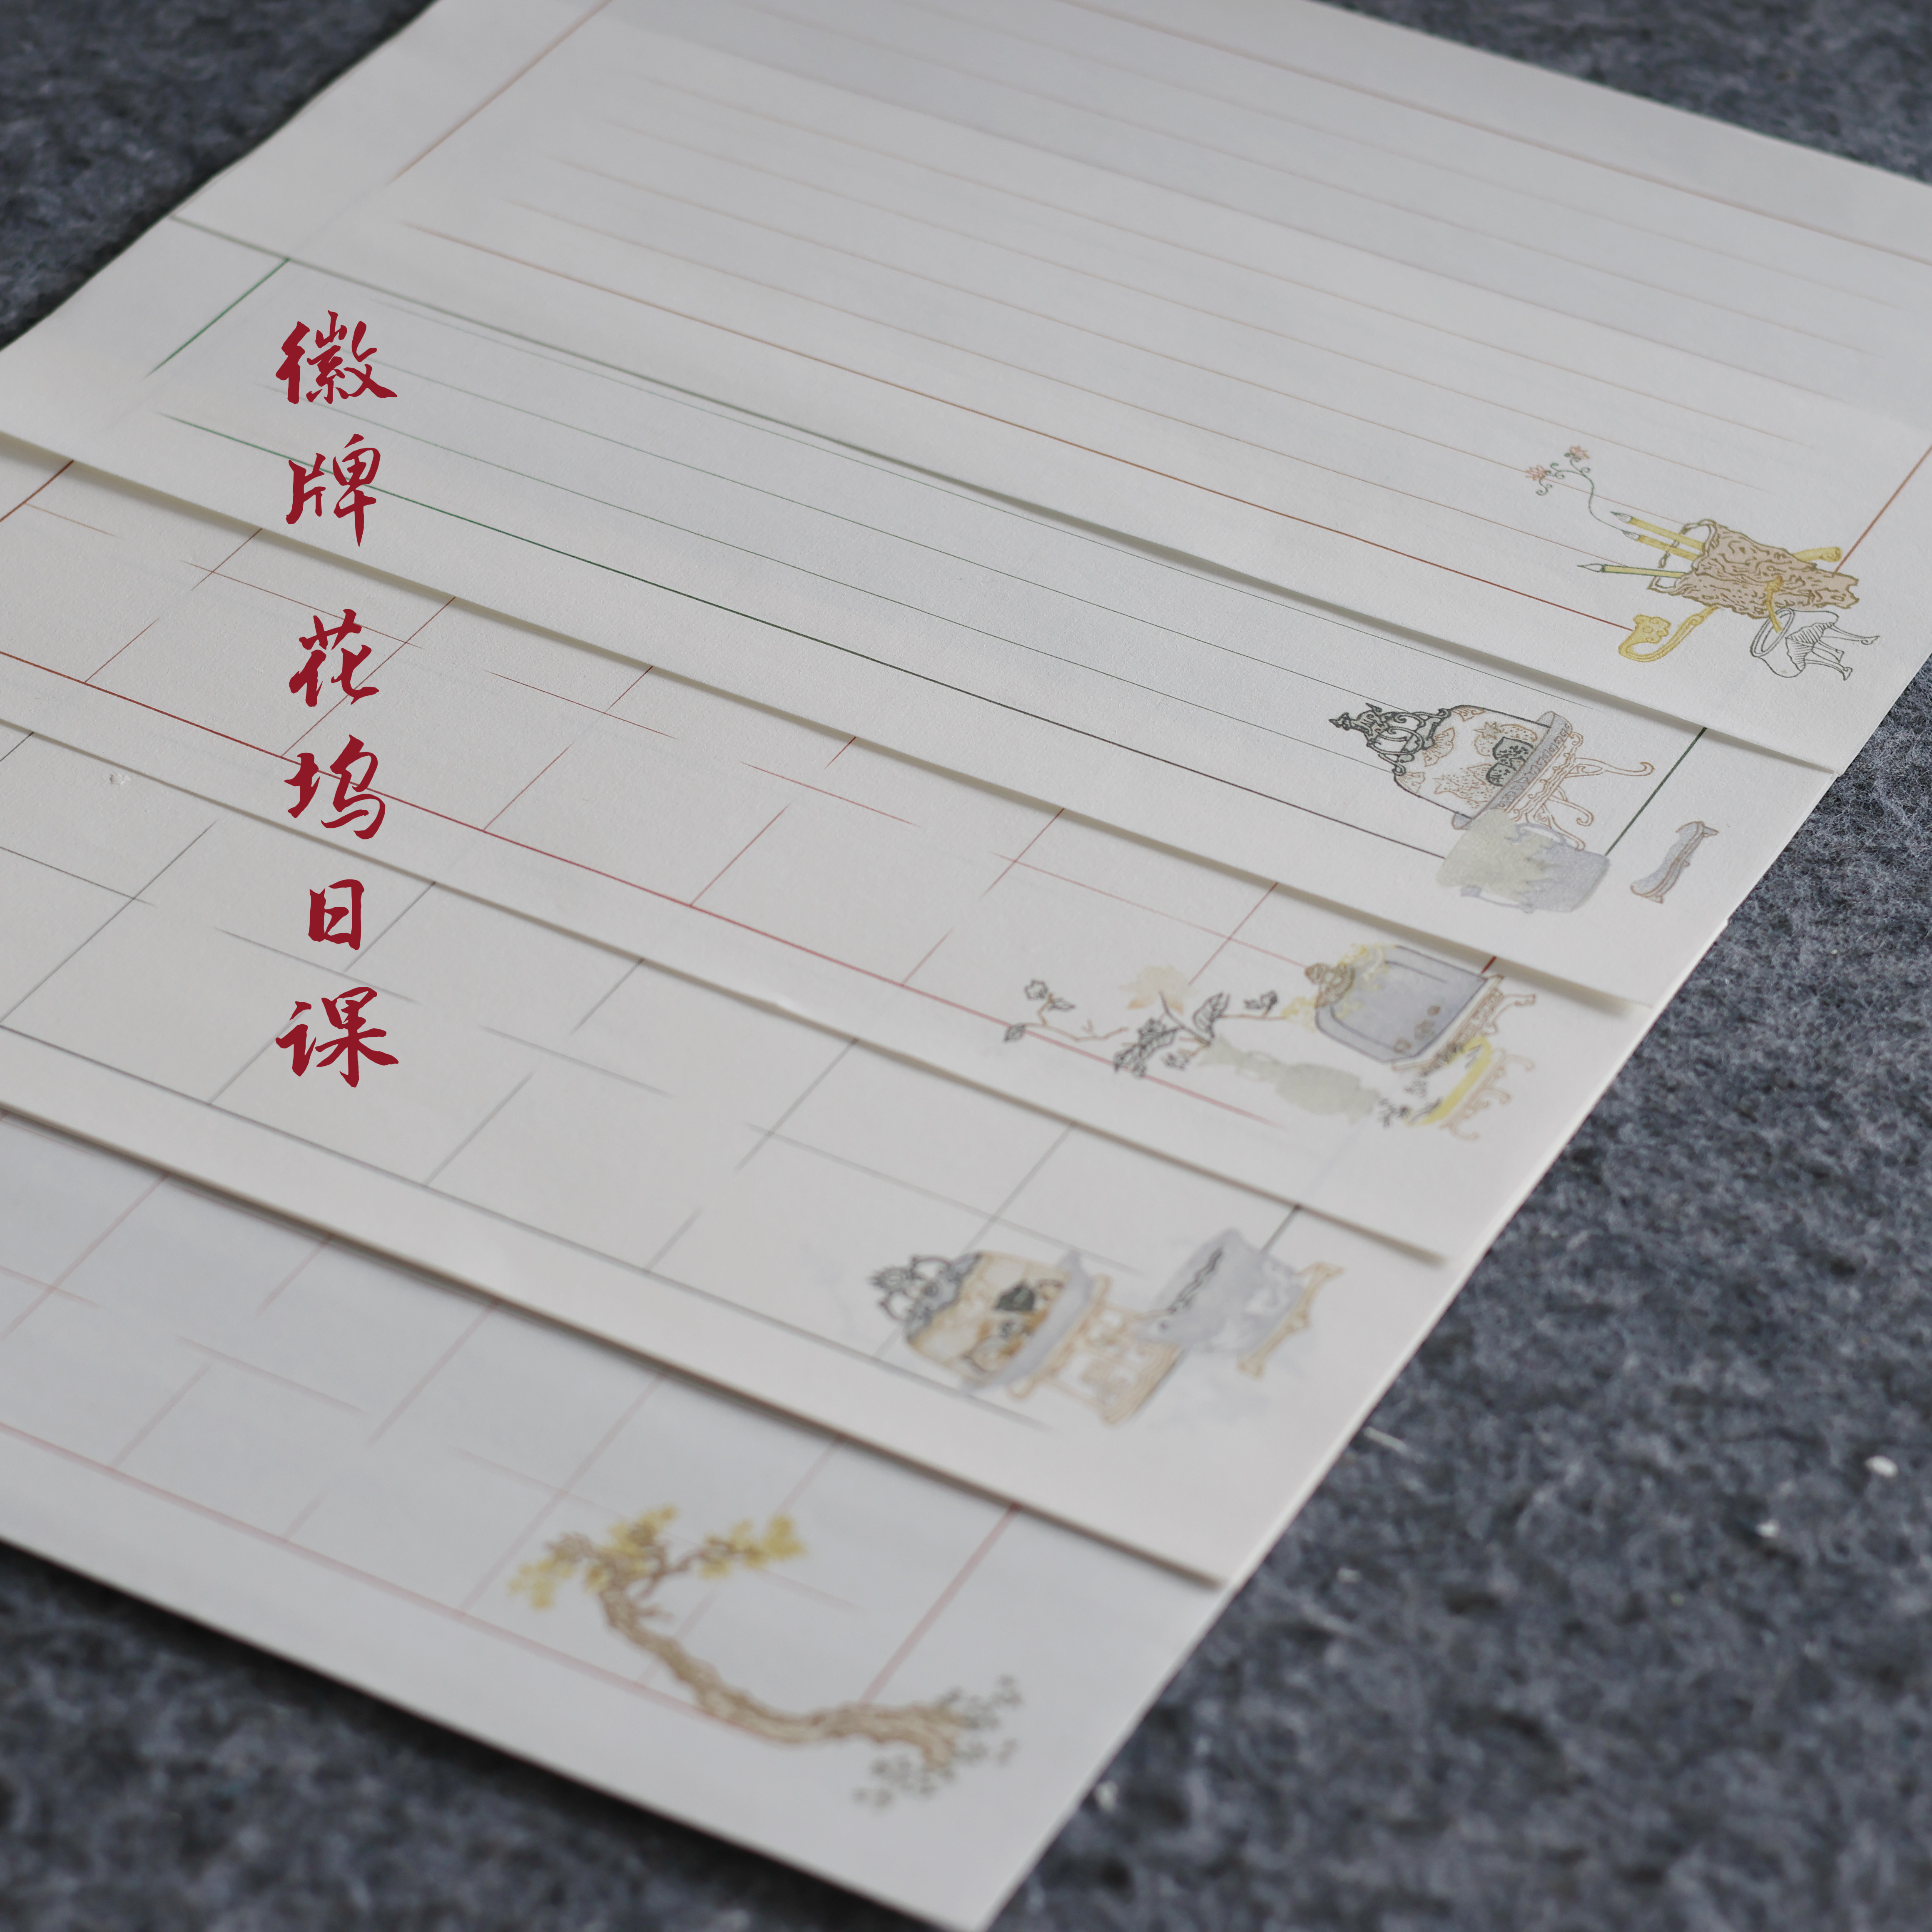 徽牌 花坞日课